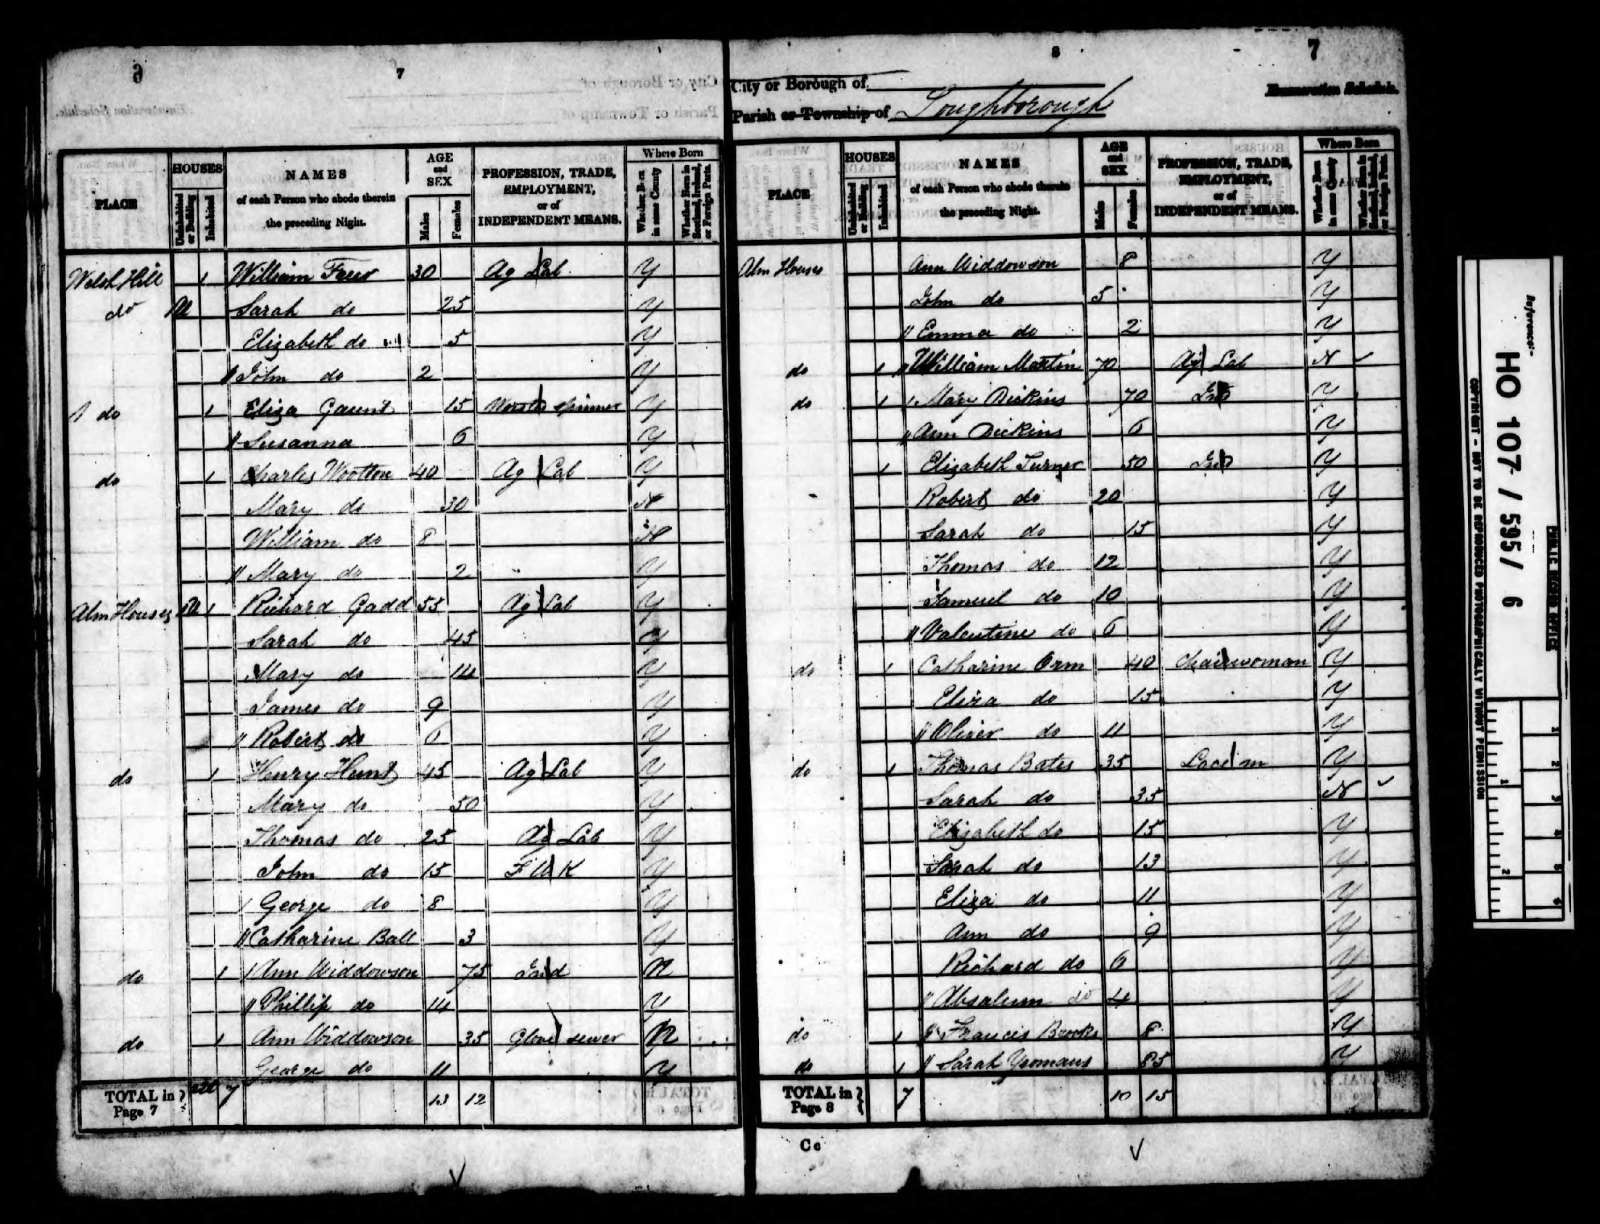 7
HOUSES
AGE and SEX
Where Born
PLACE
Uninhabited or Building
Inhabited
NAMES of each Person who abode therein the preceding Night.
Males
Females
PROFESSION, TRADE, EMPLOYMENT, or of INDEPENDENT MEANS.
Whether Born in same County
Whether Born in Scotland, Ireland, or Foreign Parts.
Welsh Hill 1 William 30 Ag Lab Y
do Sarah do 25 Y
Elizabeth do 5 Y
" John do 2 Y
do 1 Eliza Gaunt 15 Worsted spinner Y
" Susanna 6 Y
do 1 Charles Wootton 40 Ag Lab Y
Mary do 30 N
William do 8 N
" Mary do 2 Y
Alm Houses 1 Richard Gadd 55 Ag Lab Y
Sarah do 45 Y
Mary do 14 Y
James do 9 Y
" Robert do 6 Y
do 1 Henry Hunt 45 Ag Lab Y
Mary do 50 Y
Thomas do 25 Ag Lab Y
John do 15 F W K Y
George do 8 Y
" Catharine Ball 3 Y
do 1 Ann Widdowson 75 Ind N
" Phillip do 14 Y
do 1 Ann Widdowson 35 Glove sewer N
George do 11 Y
TOTAL in Page 7 } 7 13 12
8
7
City or Borough of
Enumeration Schedule.
Parish or Township of Loughborough
PLACE
HOUSES
Uninhabited or Building
Inhabited
NAMES of each Person who abode therein the preceding Night.
AGE and SEX
Males
Females
PROFESSION, TRADE, EMPLOYMENT, or of INDEPENDENT MEANS.
Where Born
Whether Born in same County
Whether Born in Scotland, Ireland, or Foreign Parts.
Alm Houses Ann Widdowson 8 Y
John do 5 Y
" Emma do 2 Y
do 1 " William Martin 70 Ag Lab N
do 1 Mary Dickins 70 Ind Y
" Ann Dickins 6 Y
1 Elizabeth Turner 50 Ind Y
Robert do 20 Y
Sarah do 15 Y
Thomas do 12 Y
Samuel do 10 Y
" Valentine do 6 Y
do 1 Catharine Orm 40 Chairwoman Y
Eliza do 15 Y
" Oliver do 11 Y
do 1 Thomas Bates 35 Lace m Y
Sarah do 35 N
Elizabeth do 15 Y
Sarah do 13 Y
Eliza do 11 Y
Ann do 9 Y
Richard do 6 Y
" Absalum do 4 Y
do 1 " Francis Brooks 8 Y
do 1 " Sarah Yeomans 85 Y
TOTAL in Page 8 } 7 10 15
Cc
Reference:-
HO 107 / 595 / 6
COPYRIGHT - NOT TO BE REPRODUCED PHOTOGRAPHICALLY WITHOUT PERMISSION